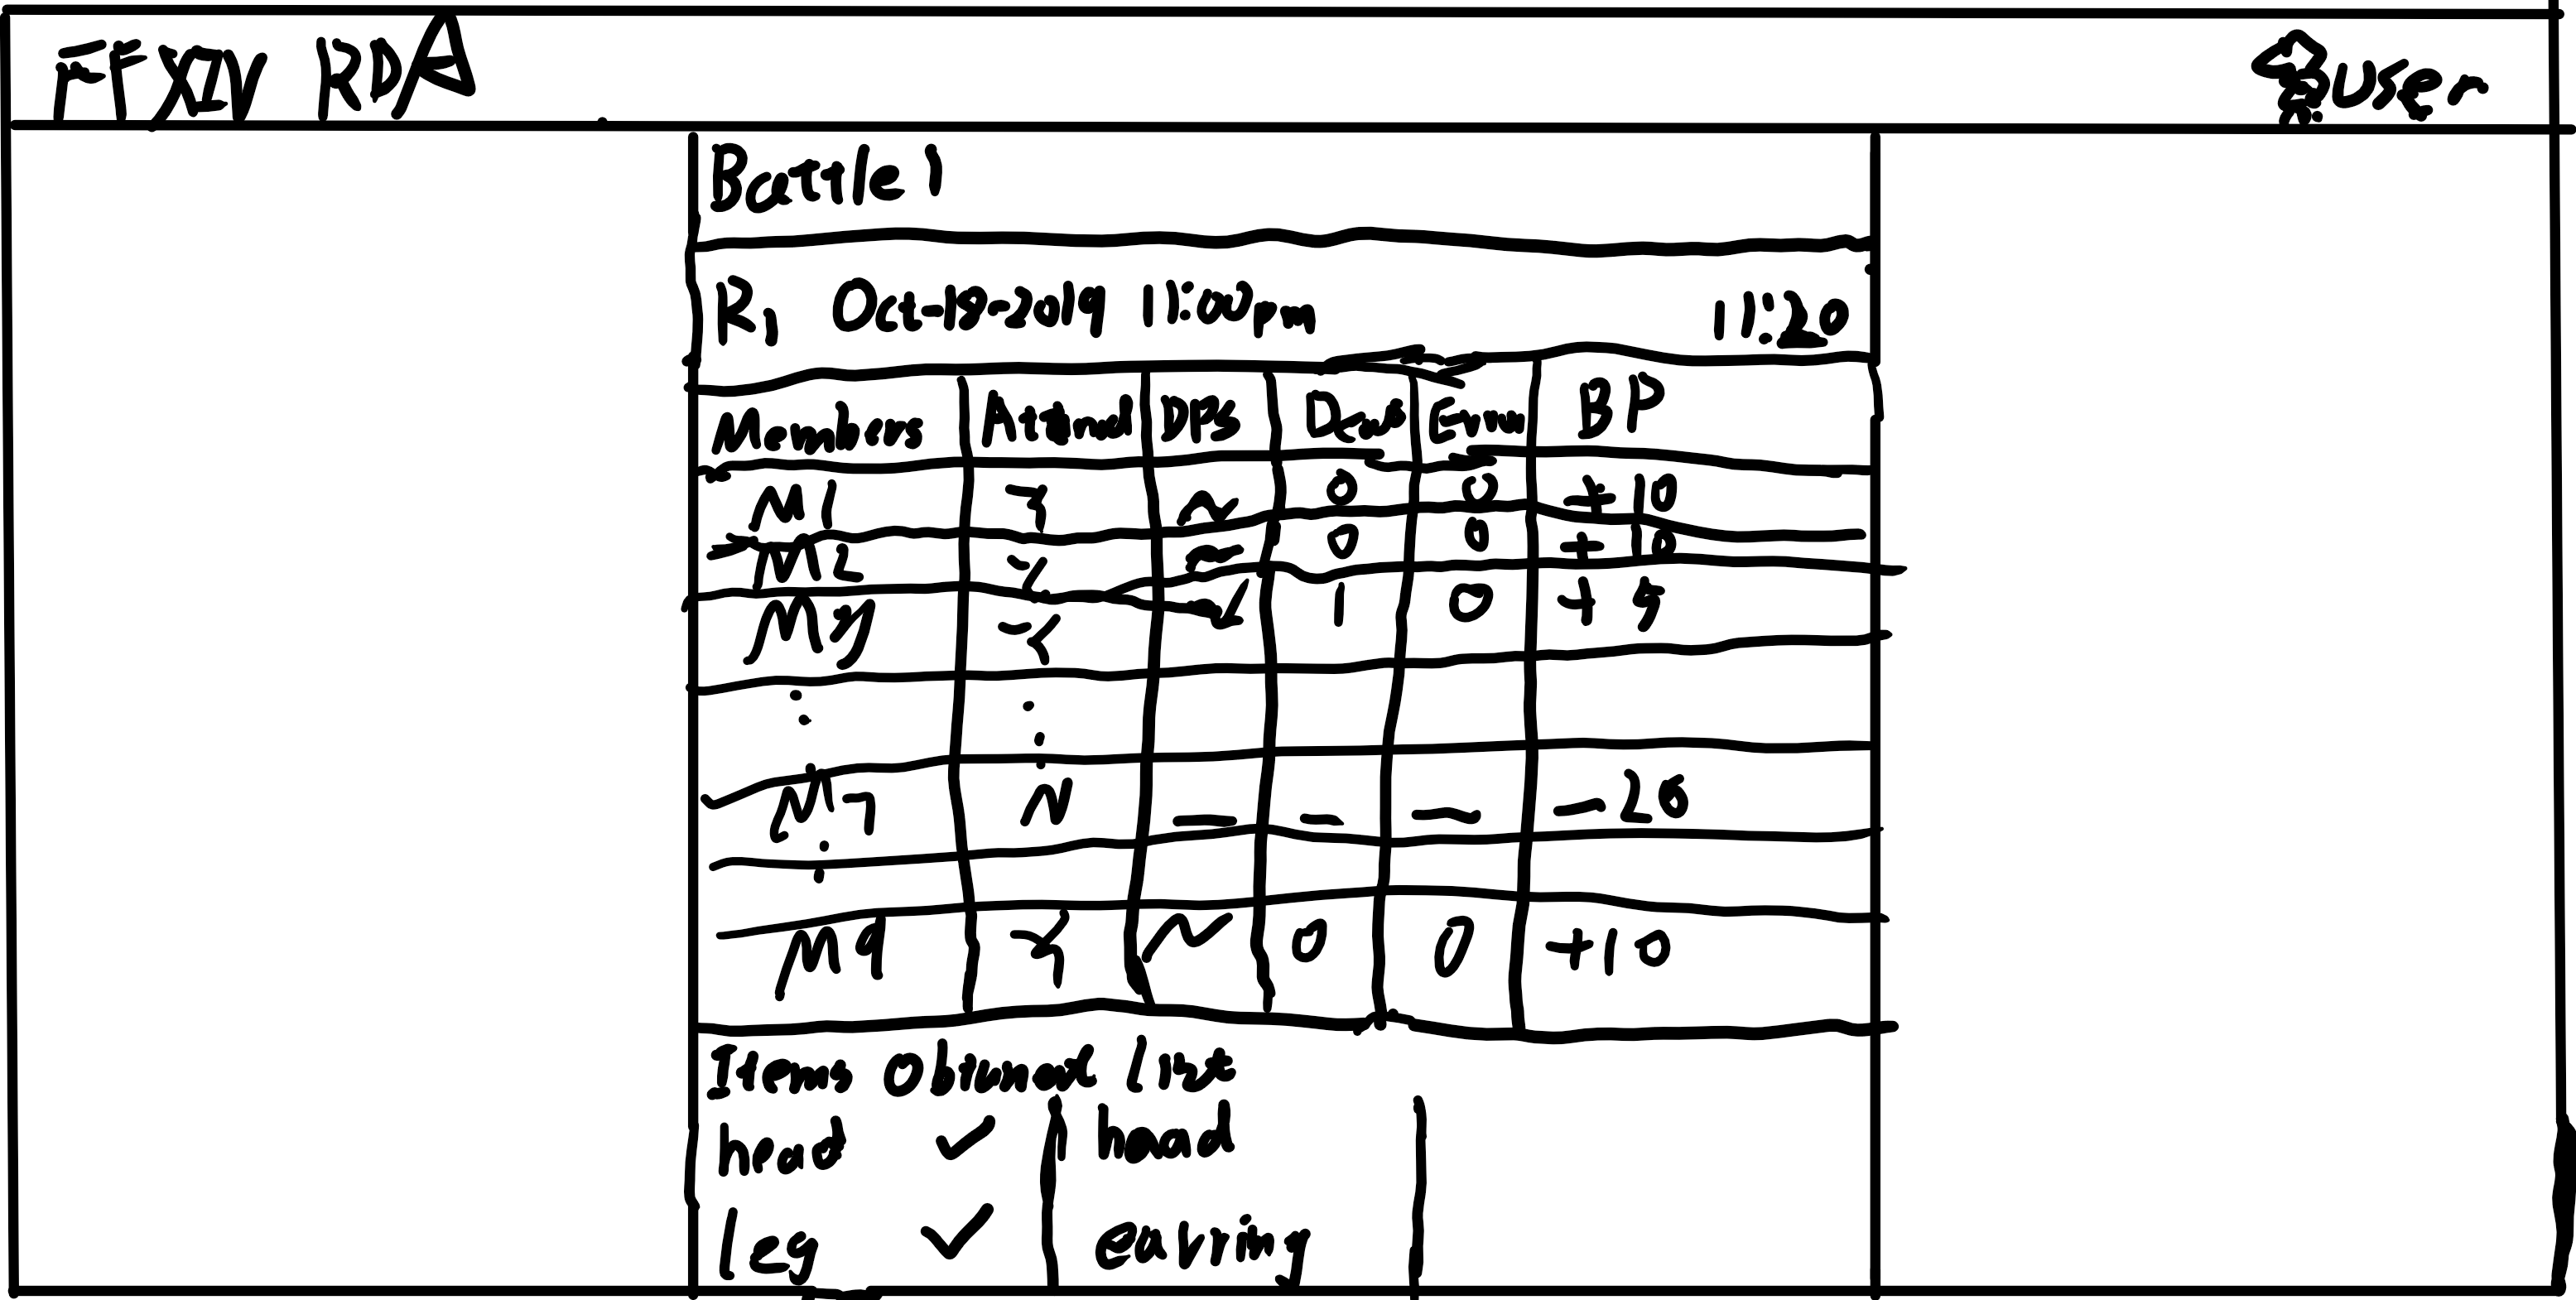 FFXIV RDA user
Battle 1
R1 Oct-18-2019 11:00pm 11:20
Members Attend DPS Dead BP
M1 Y ~ 0 0 +10
M2 Y ~ 0 0 +10
My Y 1 0 +5
M7 N — — — -20
M9 Y ~ 0 0 +10
Items list
head ✓ head
leg ✓ earring